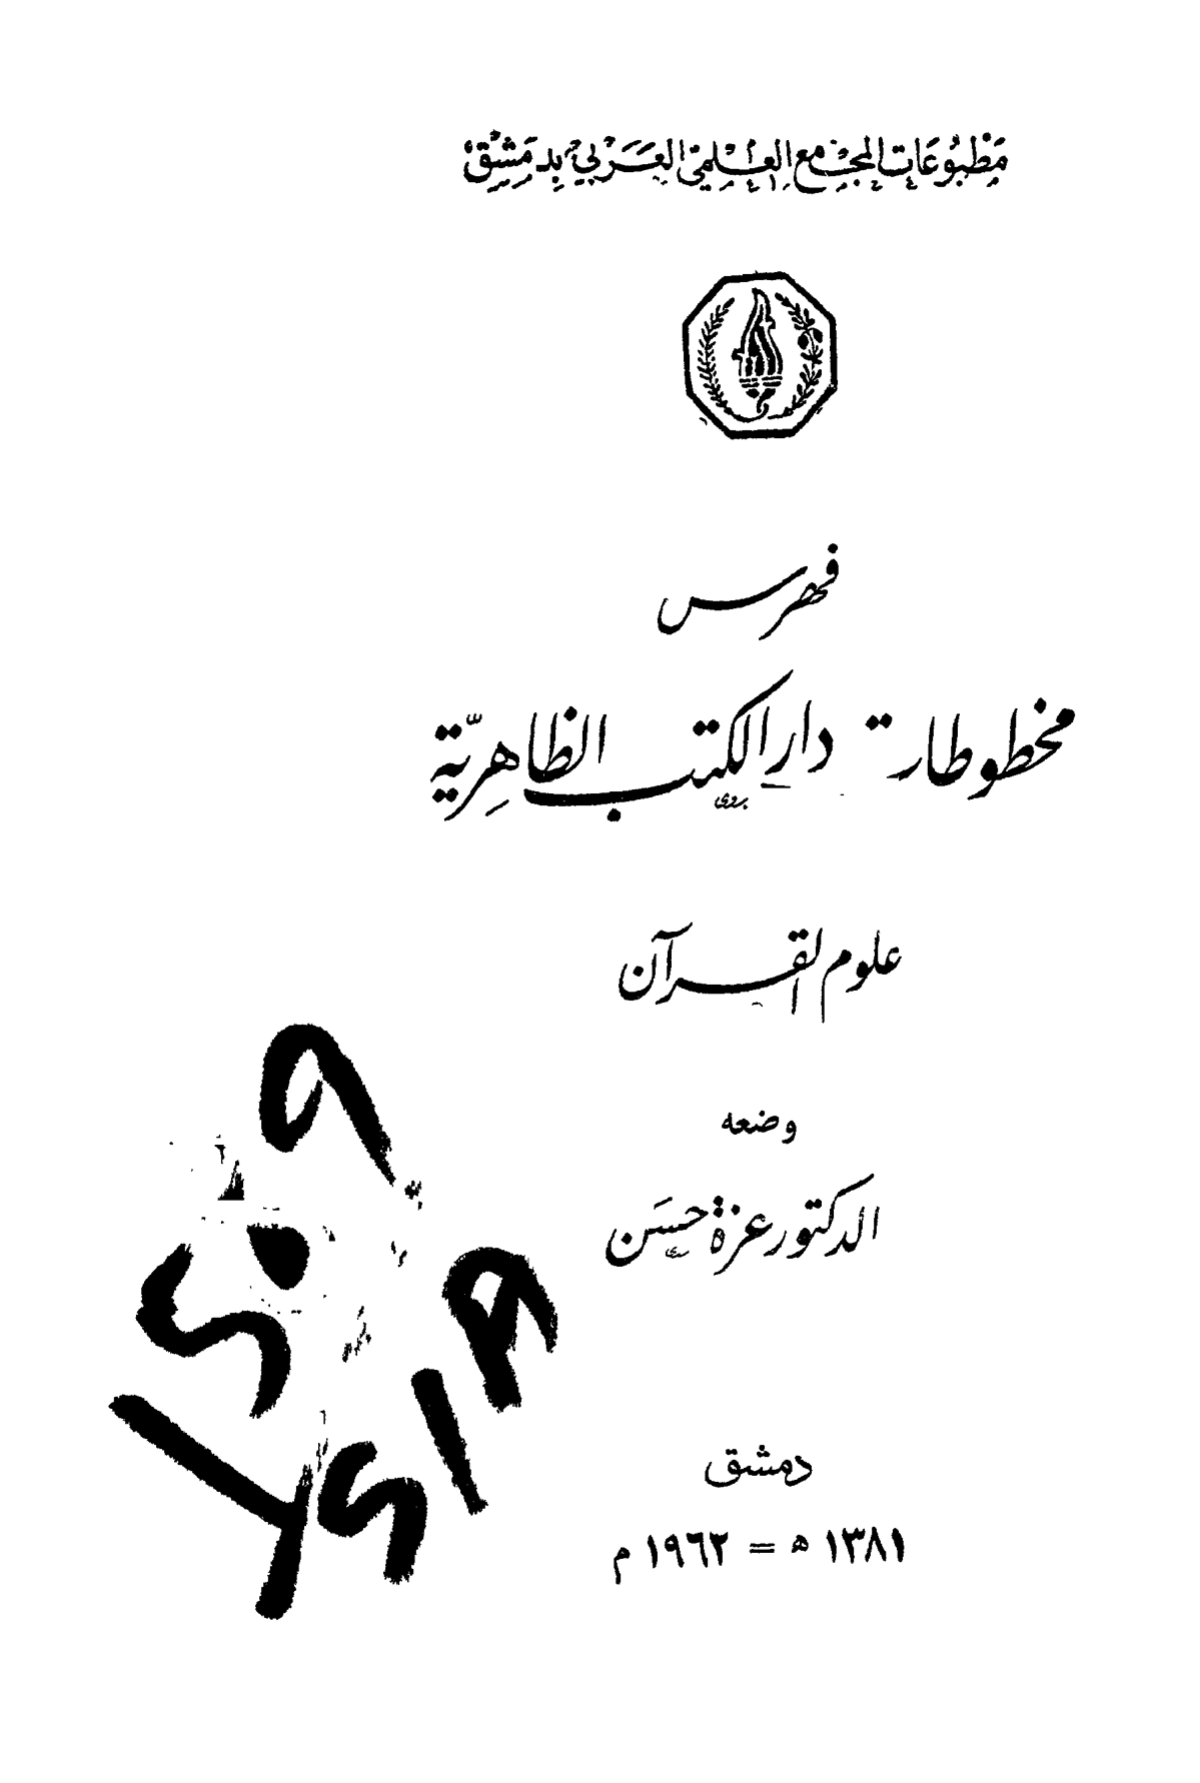 مَطبُوعَات المجْمَع العِلمِيّ العَرَبيّ بِدِمَشِق
فهرس
مخطوطات دار الكتب الظاهِريّة
علوم القرآن
وضعه
الدكتور عزة حسَن
دمشق
١٣٨١ ه = ١٩٦٢ م